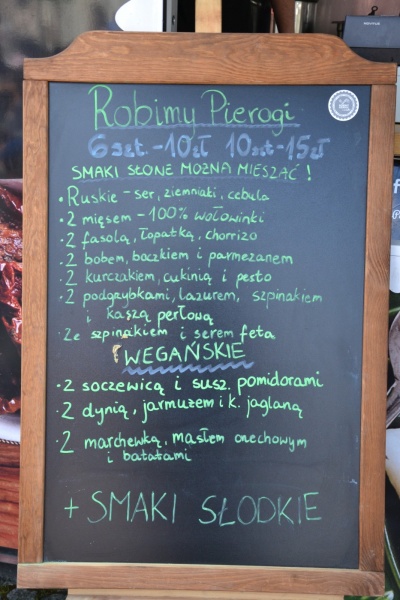 Robimy Pierogi
6 szt. - 10 zł 10 szt - 15 zł
SMAKI SŁONE MOŻNA MIESZAĆ!
• Ruskie - ser, ziemniaki, cebula
• 2 mięsem - 100% wołowinki
• 2 fasolą, łopatką, chorrizo
• 2 bobem, boczkiem i parmezanem
• 2 kurczakiem, cukinią i pesto
• 2 podgrzybkami, lazurem, szpinakiem
i kaszą perłową
• Ze szpinakiem i serem feta
WEGAŃSKIE
• 2 soczewicą i susz. pomidorami
• 2 dynią, jarmużem i k. jaglaną
• 2 marchewką, masłem orzechowym
i batatami
+ SMAKI SŁODKIE